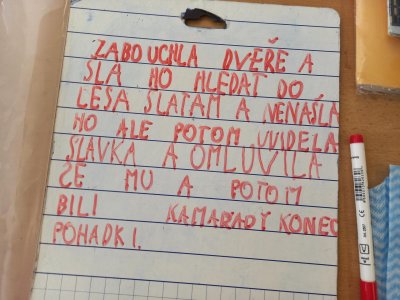 ZABOUCHLA DVEŘE A
ŠLA HO HLEDAT DO
LESA SLATAM A NENAŠLA
HO ALE POTOM UVIDELA
SLAVKA A OMLUVILA
ČE MU A POTOM
BILI KAMARADY KONEC
POHADKI.